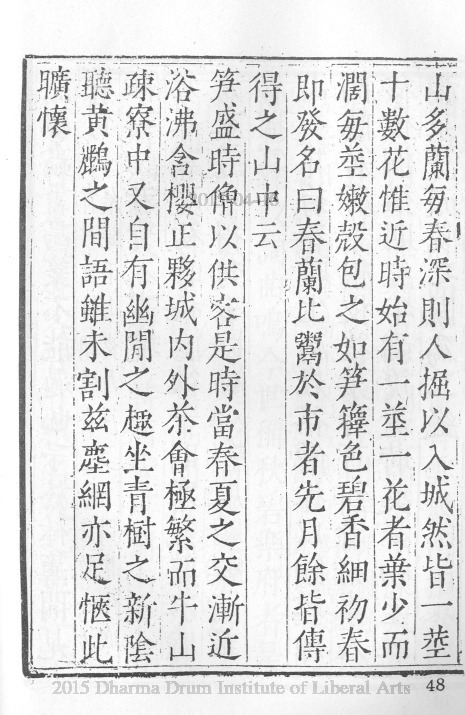 山多蘭每春深則人掘以入城然皆一莖
十數花惟近時始有一莖一花者葉少而
濶每莖嫩殼包之如笋籜色碧香細初春
即發名曰春蘭比鬻於市者先月餘皆傳
得之山中云
笋盛時僧以供客是時當春夏之交漸近
浴沸含櫻正夥城内外茶會極繁而牛山
疎寮中又自有幽閒之趣坐青樹之新陰
聽黄鸝之間語雖未割兹塵網亦足愜此
曠懷
2015 Dharma Drum Institute of Liberal Arts 48